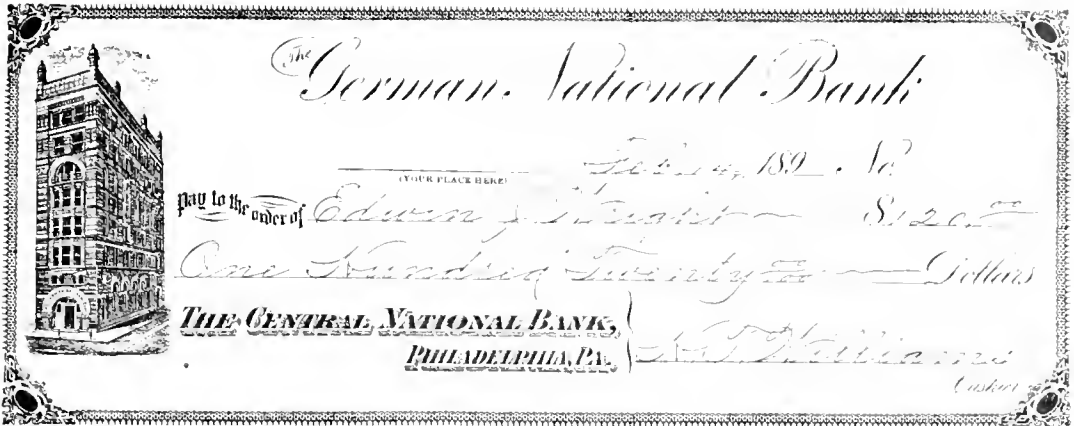 The German National Bank
189 No
(YOUR PLACE HERE)
Pay to the order of Edwin J $120.00
One Hundred Twenty 00/100 Dollars
THE CENTRAL NATIONAL BANK,
PHILADELPHIA, PA.
Williams
Cashier